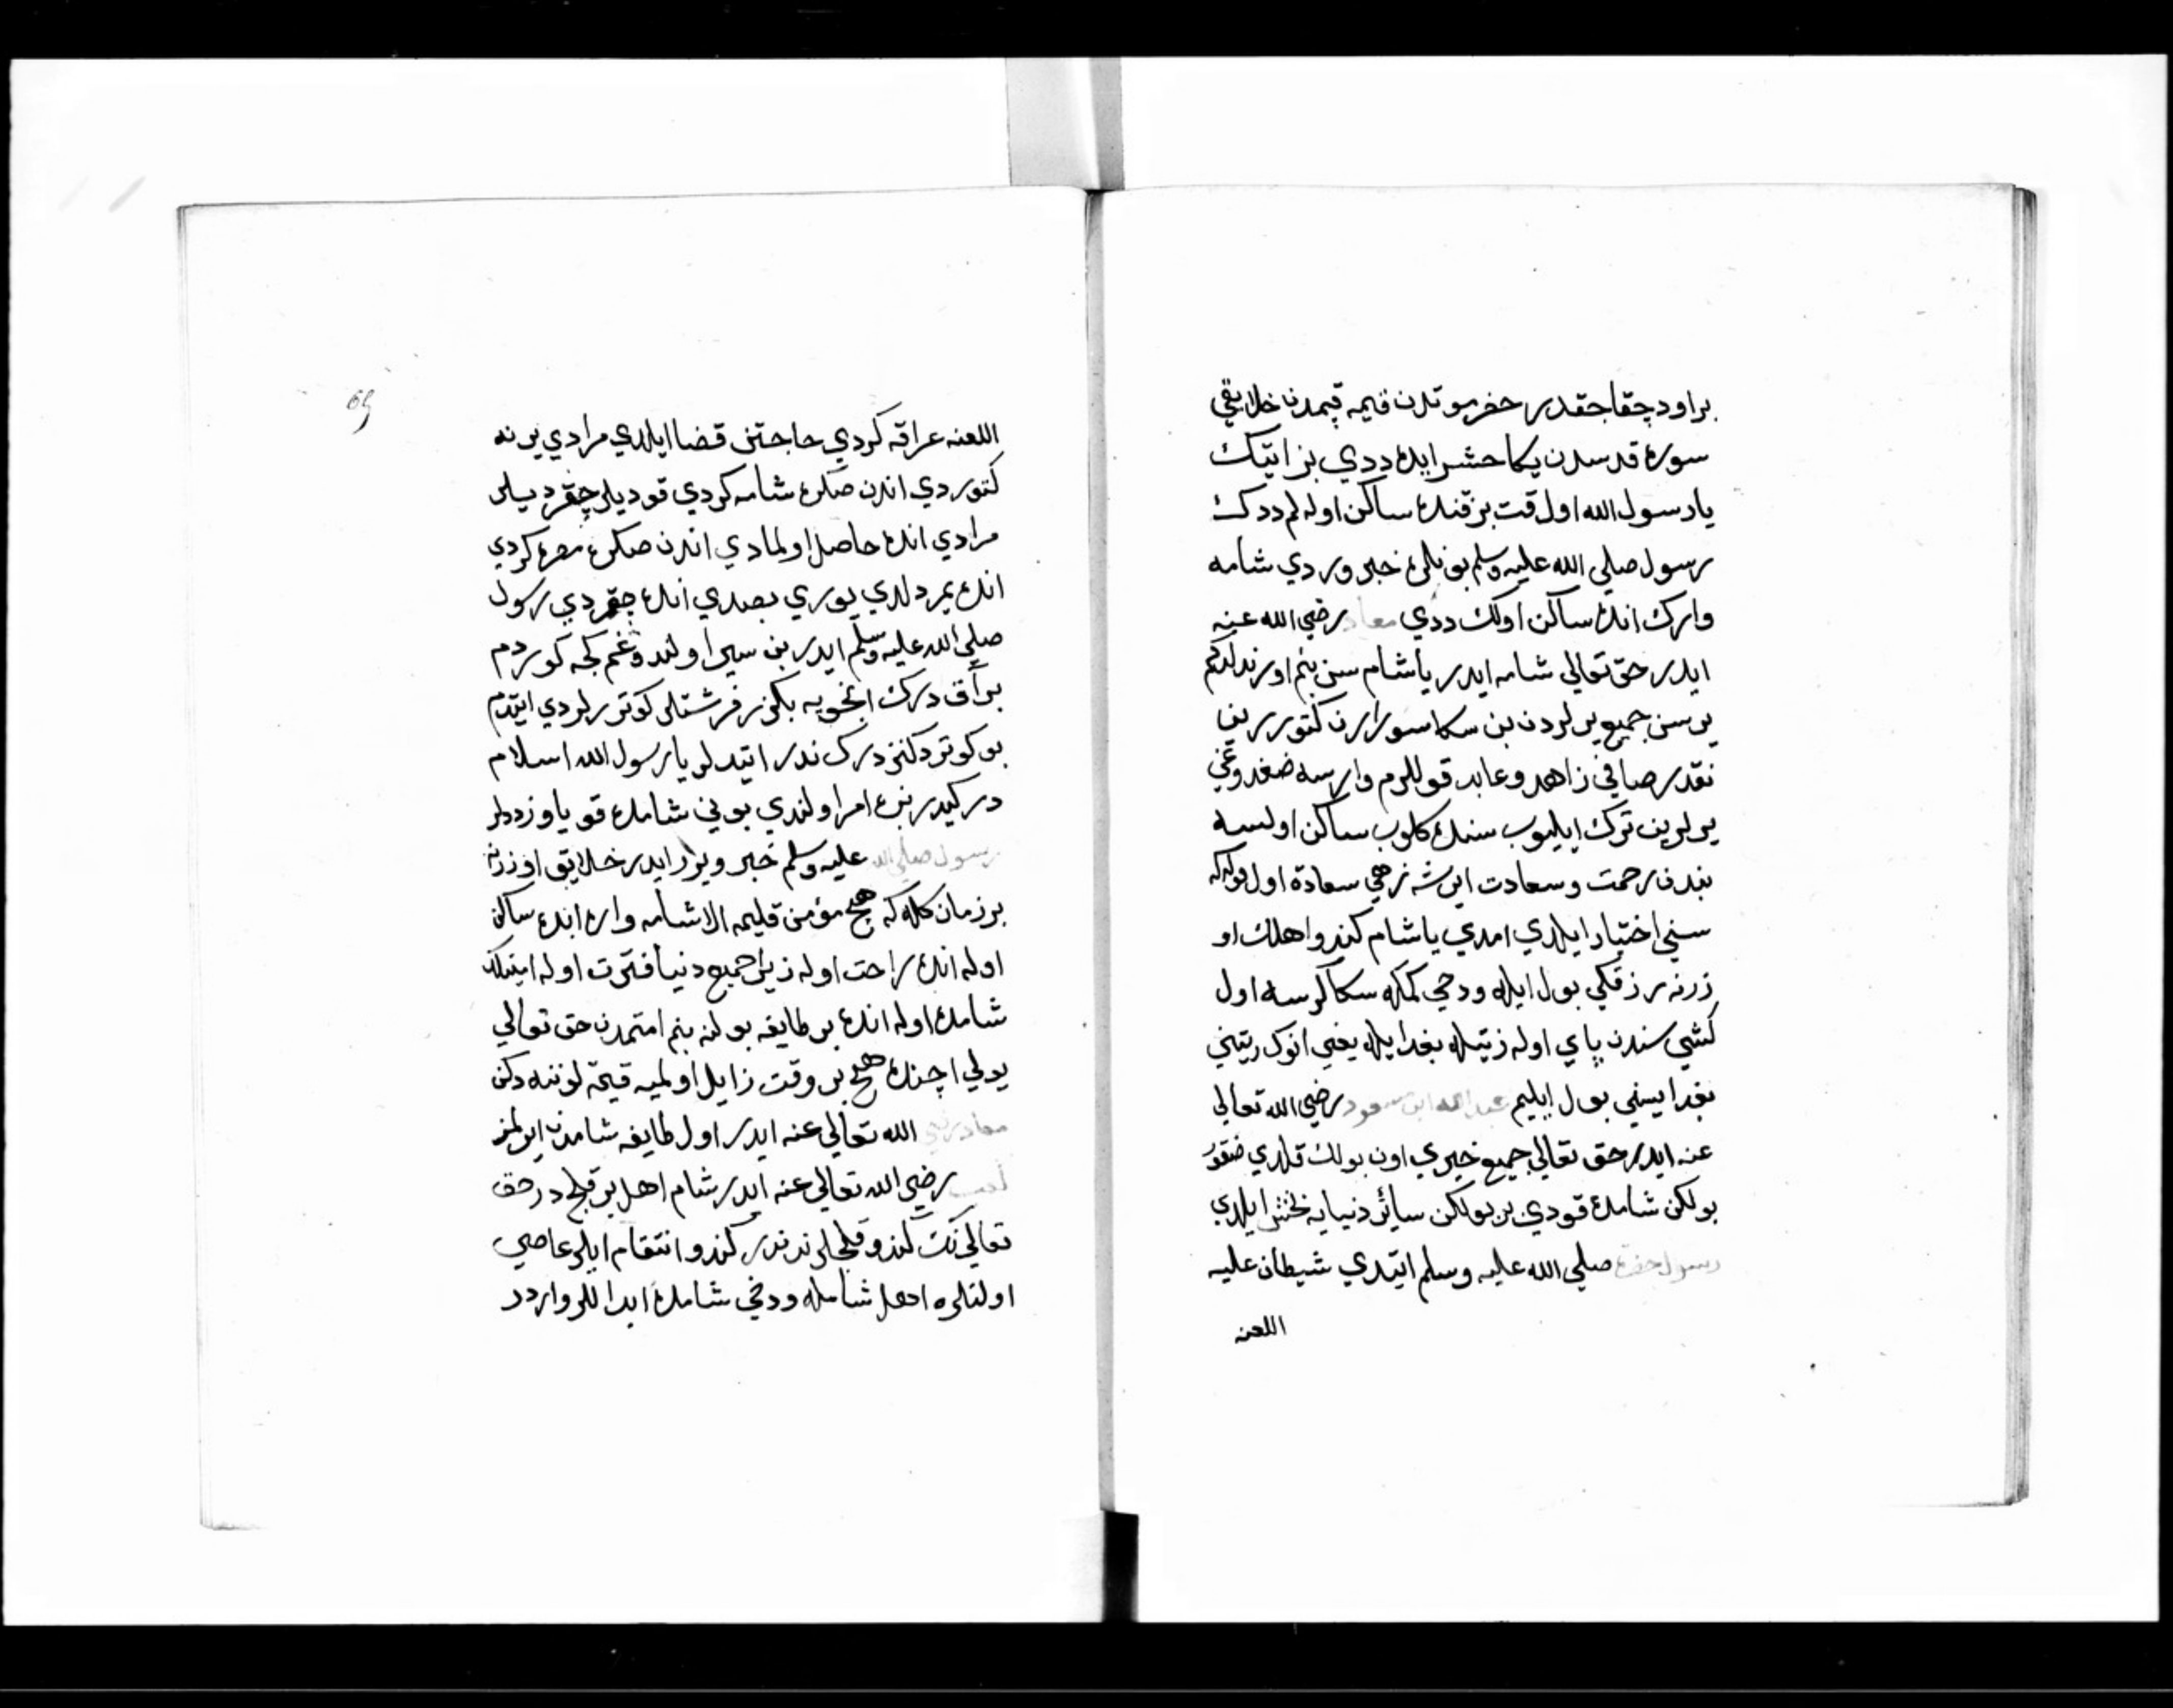 براود چقاجقدر حضرموتدن قيمه قپمدن خلايقي
سوره قدسدن يكا حشر ايده ددي بز ايتّك
يارسول الله اول وقت بز قنده ساكن اوله لم ددك
رسول صلي الله عليه وسلم بو نلره خبر وردي شامه
وارك انده ساكن اولك ددي معاد رضي الله عنه
ايدر حق تعالي شامه ايدر يا شام سن بنم اوزندلدكم
يرسن جميع يرلردن بن سكا سورارن كتوررين
نقدر صافي زاهد وعابد قوللرم وارسه ضغدوغي
يرلرين ترك ايليوب سنده كلوب ساكن اولسه
بندن رحمت وسعادت ايرشه زهي سعادة اول قوله كه
سني اختيار ايلدي امدي يا شام كندو اهلك او
زرنه رزقكي بول ايله ودخي كمكه سكا كرسه اول
كشي سندن باي اوله زيتله بغدايله يعني انوك زيتني
بغدايسني بول ايليم عبد الله ابن مسعود رضي الله تعالي
عنه ايدر حق تعالي جميع خيري اون بولك قلدي ضقوز
بولكن شامده قودي بر بولكن سائر دنيايه بخش ايلدي
رسول حضرة صلي الله عليه وسلم ايتدي شيطان عليه
اللعنه
65
اللعنه عراقه كردي حاجتن قضا ايلدي مرادي يرنه
كتوردي اندن صكره شامه كردي قوديلر چقرديلر
مرادي انده حاصل اولمادي اندن صكره مصره كردي
انده يمردلدي يوري بصدي انده چقردي رسول
صلي الله عليه وسلم ايدر بن سيرا ولندوغم كجه كوردم
بر آق درك انجويه بكزر فرشتلر كوتوررلردي ايتدم
بو كوتردكنز درك ندر ايتدلر يا رسول الله اسلام
دركيدر بزه امر اولندي بوني شامده قويا وز ددلر
رسول صلي الله عليه وسلم خبر ويرر ايدر خلايق اوزرنه
بر زمان كله كه هيچ مؤمن قليمه الا شامه واره انده ساكن
اوله انده راحت اوله زيرا جميع دنيا فترت اوله امينلك
شامده اوله انده بر طايفه بولنه بنم امتمدن حق تعالي
يولي اچنده هيچ بر وقت زايل اولميه قيمة لوننه دكن
معاد رضي الله تعالي عنه ايدر اول طايفه شامدن ايرلمز
كعب رضي الله تعالي عنه ايدر شام اهل بر قلج درحق
تعالي نك كندو قلجلرندندر كندو انتقام ايلر عاصي
اولنلره اهل شامله ودخي شامده ابداللر واردر